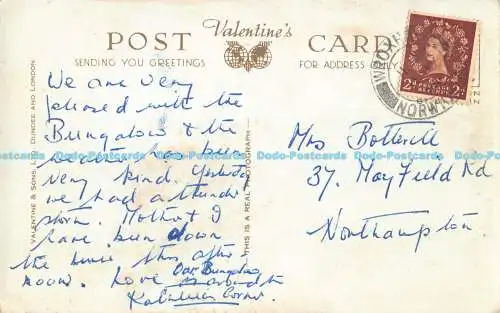 POST Valentine's CARD
SENDING YOU GREETINGS
FOR ADDRESS ONLY
WROXH
NORWICH
2D 2D
POSTAGE REVENUE
VALENTINE & SONS, LTD., DUNDEE AND LONDON
THIS IS A REAL PHOTOGRAPH
We are very
pleased with the
Bungalow & the
weather has been
very kind. Yesterday
we had a thunder
storm. Mother & I
have been down
the this after
noon. Love Our Bungalow
is around the
Corner.
Mrs Botterill
37, Mayfield Rd
Northampton.
Dodo-Postcards Dodo-Postcards Dodo-Postcards Dodo-Postcards
Dodo-Postcards Dodo-Postcards Dodo-Postcards Dodo-Postcards